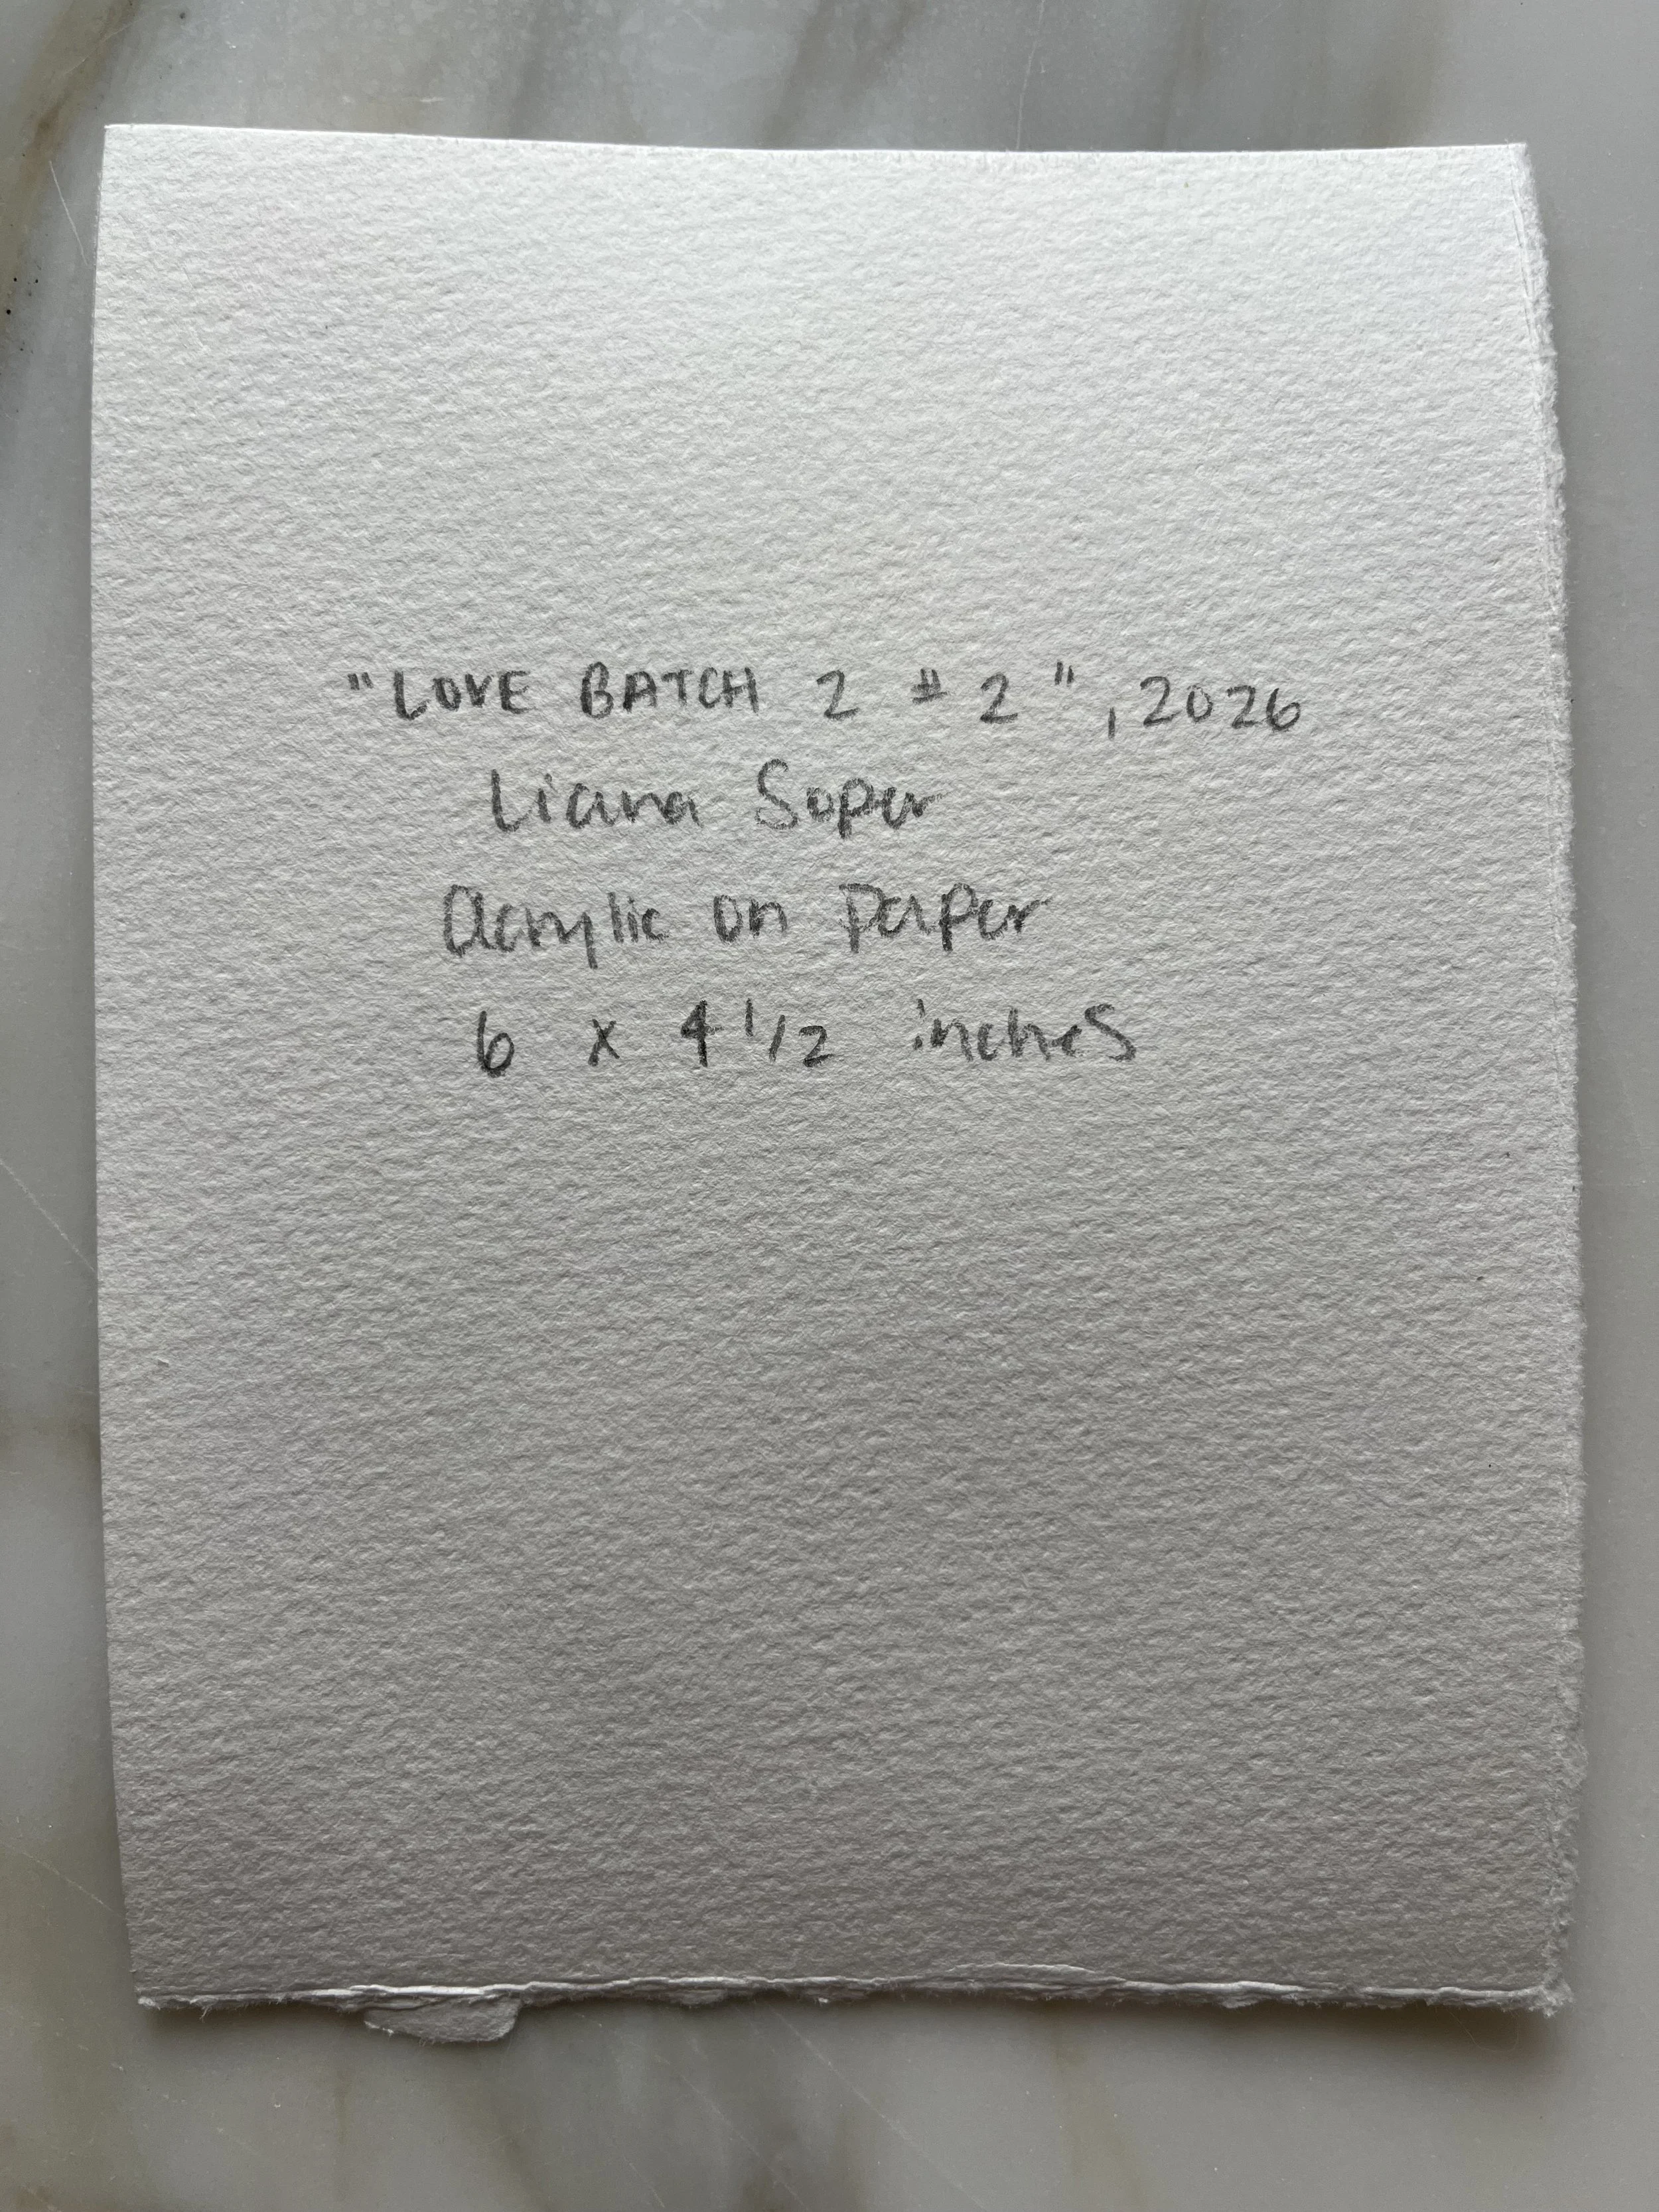 "LOVE BATCH 2 # 2", 2026
Liana Soper
Acrylic on Paper
6 x 4 1/2 inches